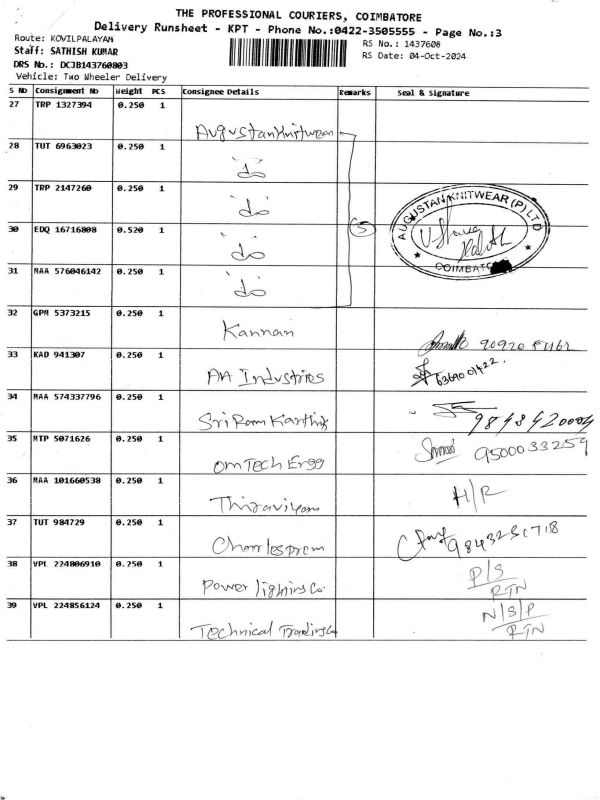 THE PROFESSIONAL COURIERS, COIMBATORE
Delivery Runsheet - KPT - Phone No.:0422-3505555 - Page No.:3
Route: KOVILPALAYAM
RS No.: 1437608
Staff: SATHISH KUMAR
RS Date: 04-Oct-2024
DRS No.: DCJB143760803
Vehicle: Two Wheeler Delivery
S No Consignment No Weight PCS Consignee Details Remarks Seal & Signature
27 TRP 1327394 0.250 1
Augustan Knitwear
28 TUT 6963023 0.250 1
do
29 TRP 2147260 0.250 1
do
30 EDQ 16716808 0.520 1
do
5
AUGUSTAN KNITWEAR (P) LTD
COIMBATORE
31 MAA 576046142 0.250 1
do
32 GPM 5373215 0.250 1
Kannan
33 KAD 941307 0.250 1
AA Industries
34 MAA 574337796 0.250 1
Sri Ram Karthik
35 MTP 5071626 0.250 1
Om Tech Engg 9500033259
36 MAA 101660538 0.250 1
Thiraviyam H/R
37 TUT 984729 0.250 1
Charlesprem
38 VPL 224806910 0.250 1
Power lighting Co P/S
RTN
39 VPL 224856124 0.250 1
Technical Trading Co N/S/P
RTN